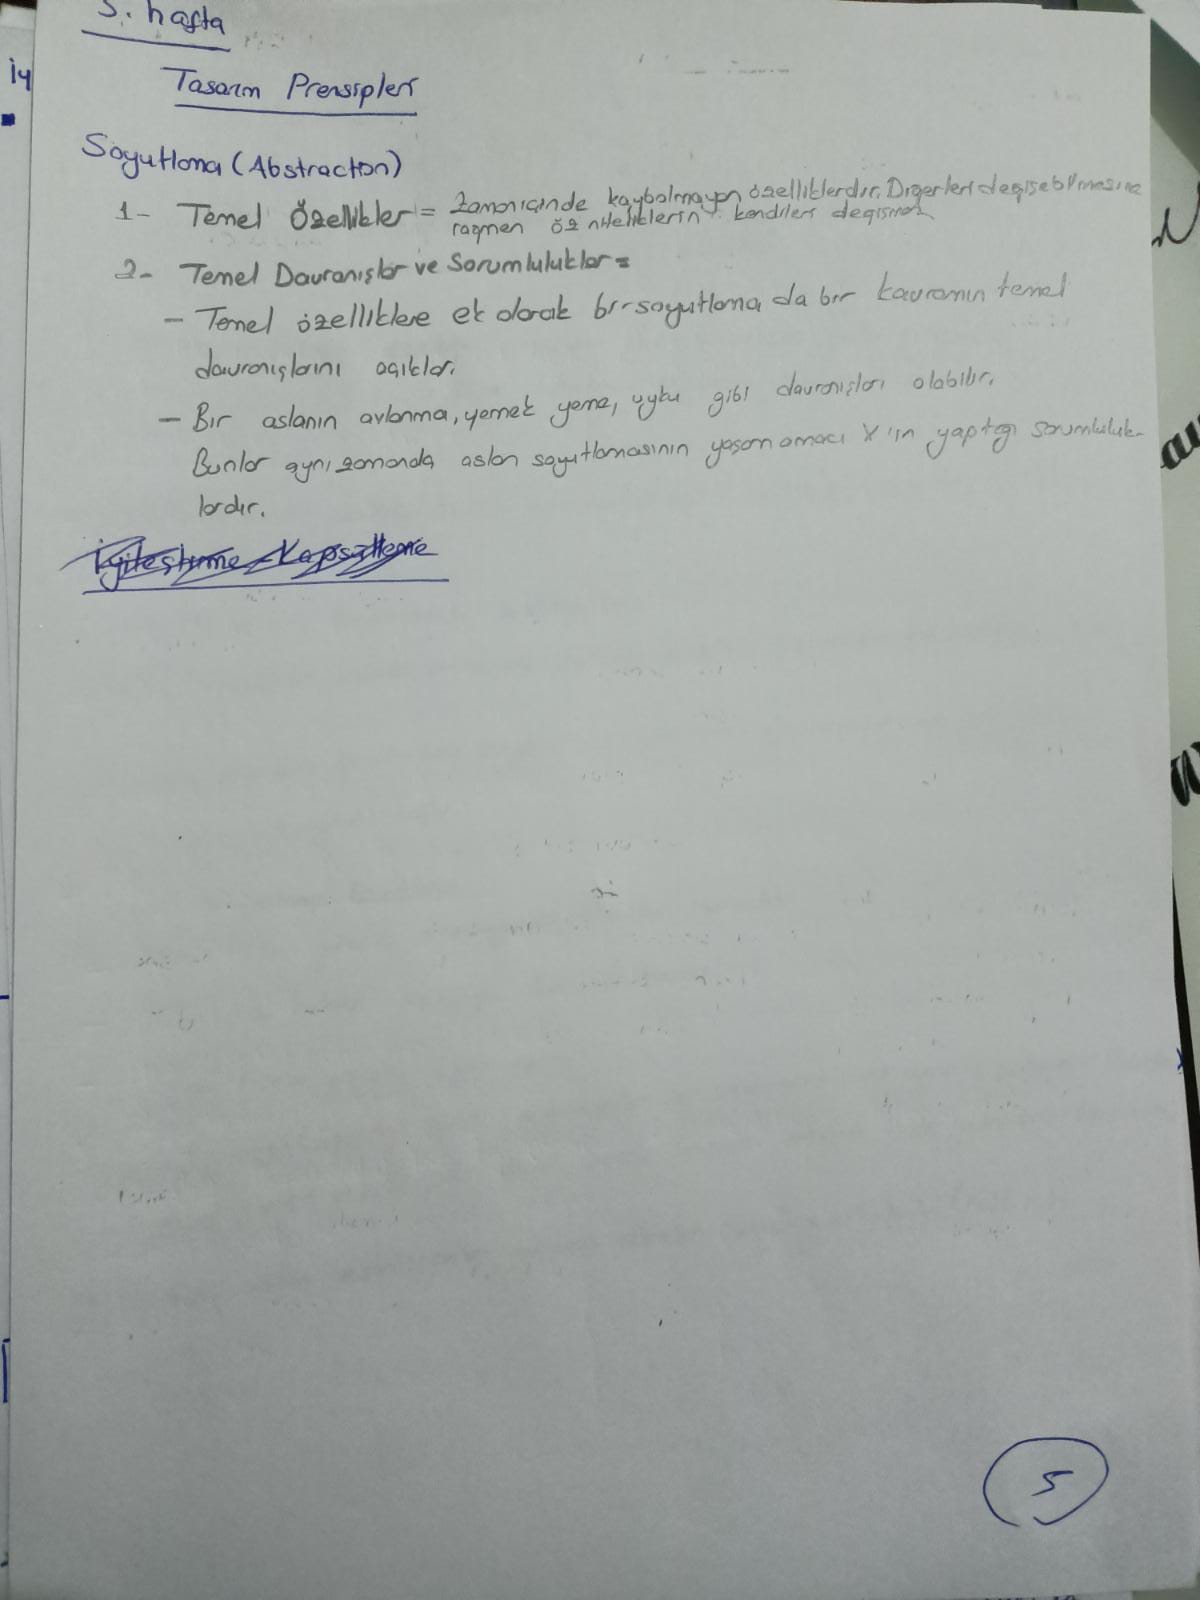 5. hafta
Tasarım Prensipleri
Soyutlama (Abstraction)
1- Temel Özellikler = Zaman içinde kaybolmayan özelliklerdir. Diğerleri değişebilmesine
rağmen öz niteliklerin kendileri değişmez
2- Temel Davranışlar ve Sorumluluklar =
- Temel özelliklere ek olarak bir soyutlama da bir kavramın temel
davranışlarını açıklar.
- Bir aslanın avlanma, yemek yeme, uyku gibi davranışları olabilir.
Bunlar aynı zamanda aslan soyutlamasının yaşam amacı için yaptığı sorumluluk-
lardır.
İyileştirme - Kapsülleme
5
iy